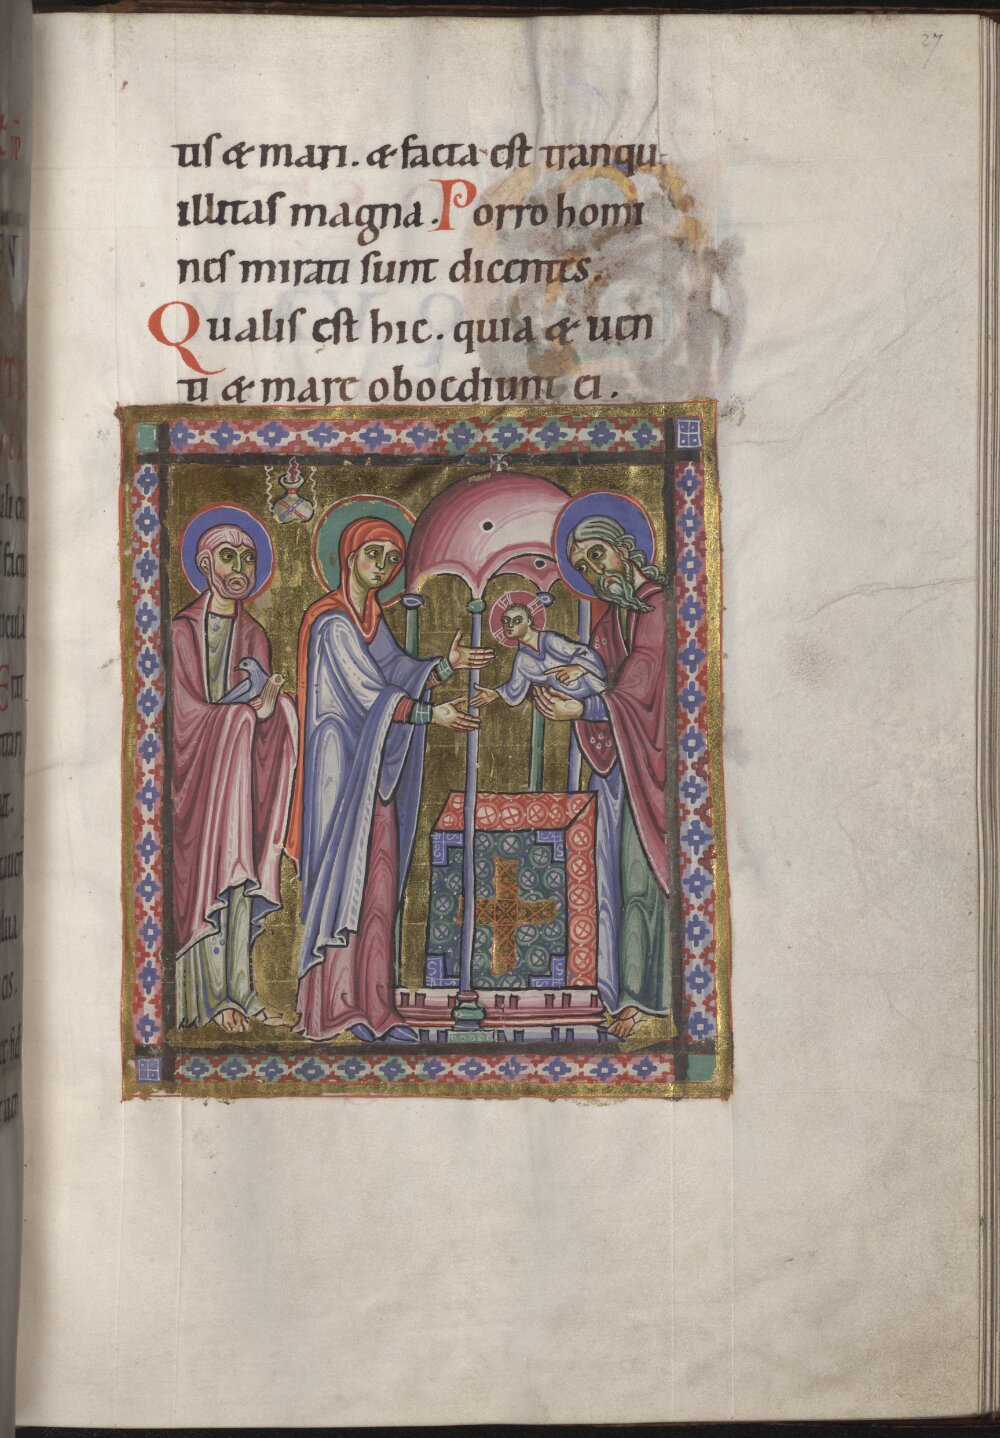 27
tis & mari. & facta est tranqu
illitas magna. Porro homi
nes mirati sunt dicentes.
Qualis est hic. quia & uen
ti & mare oboediunt ei.